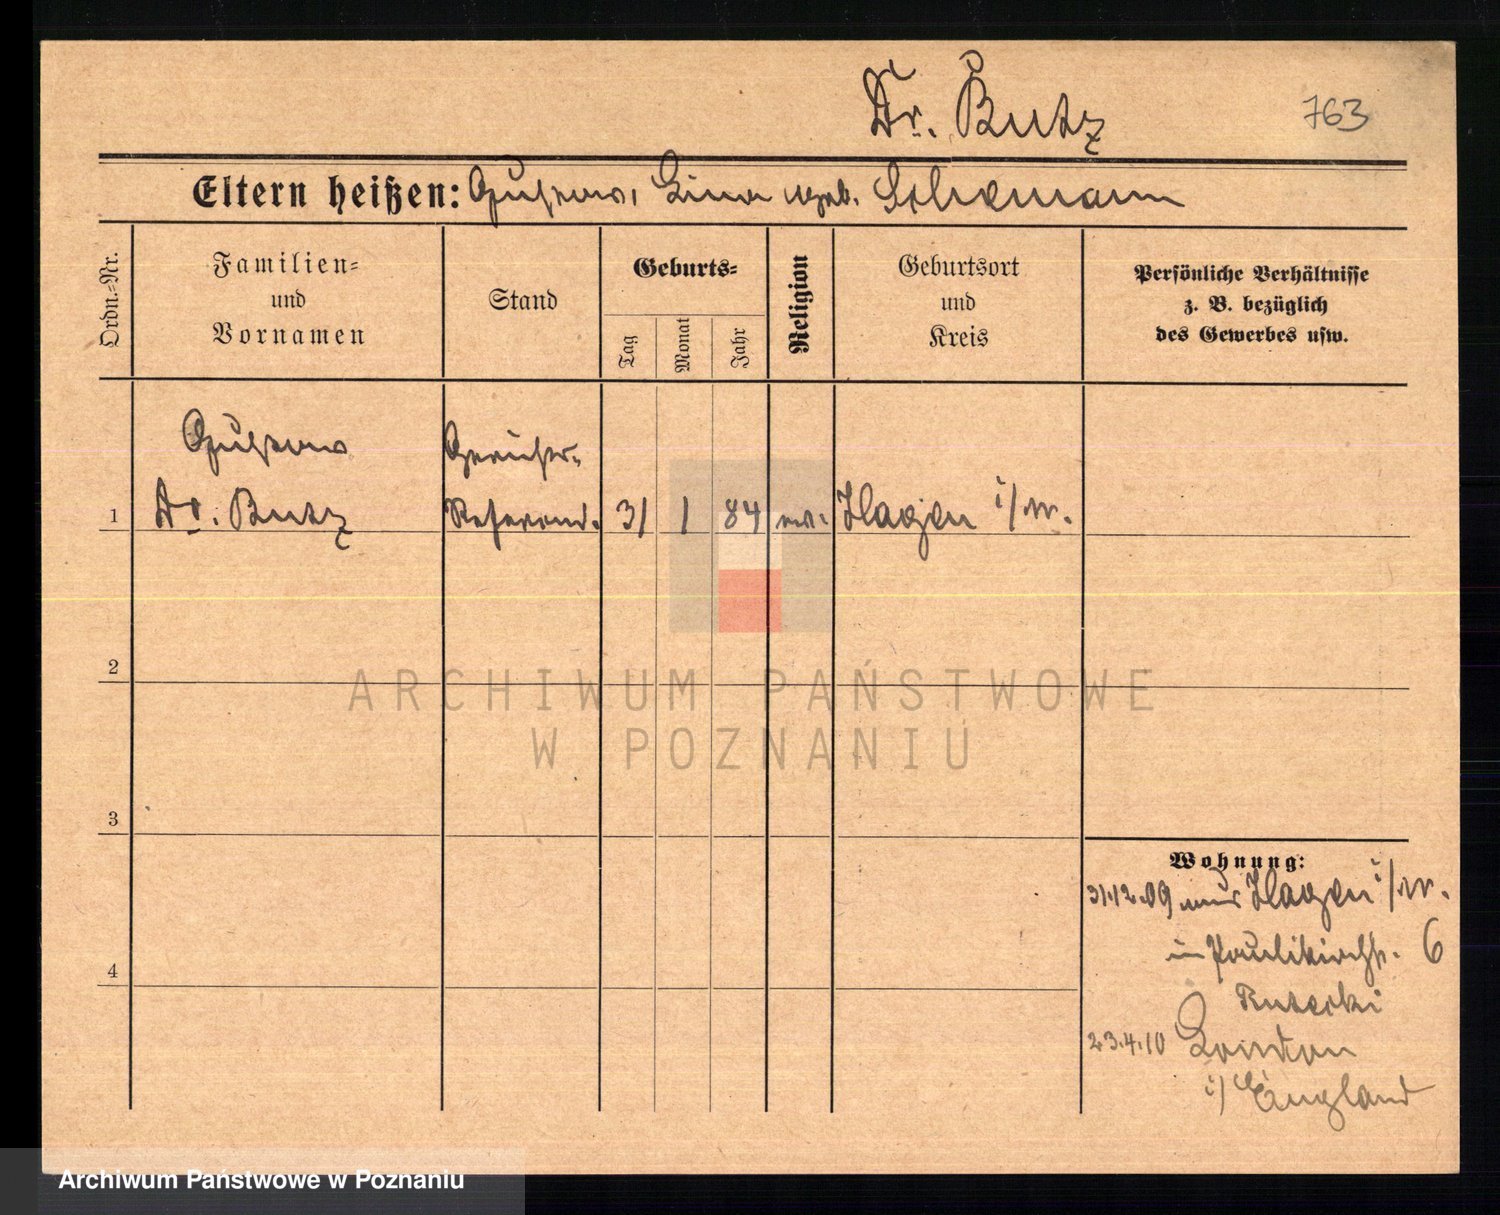 Dr. Butz
763
Eltern heißen: Gustav, Lina geb. Schemann
Ordn.-Nr.
Familien-
und
Vornamen
Stand
Geburts-
Tag
Monat
Jahr
Religion
Geburtsort
und
Kreis
Persönliche Verhältnisse
z. B. bezüglich
des Gewerbes usw.
Gustav
Gerichts-
1 Dr. Butz Referend. 31 1 84 ev. Hagen i/W.
2
3
4
Wohnung:
31.12.09 aus Hagen i/W.
in Paulikirchstr. 6
Rutecki
23.4.10 London
i/ England
ARCHIWUM PAŃSTWOWE
W POZNANIU
Archiwum Państwowe w Poznaniu